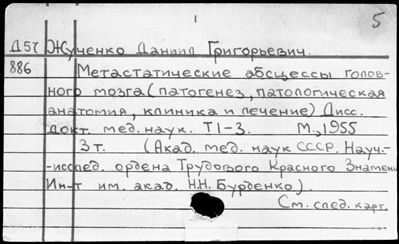 5
Д57 Жученко Даниил Григорьевич.
886 Метастатические абсцессы голов-
ного мозга (патогенез, патологическая
анатомия, клиника и лечение) Дисс.
докт. мед. наук. Т1-3. М., 1955
3т. (Акад. мед. наук СССР. Науч.-
-исслед. ордена Трудового Красного Знамени
Ин-т им. акад. Н.Н. Бурденко).
См. след. карт.